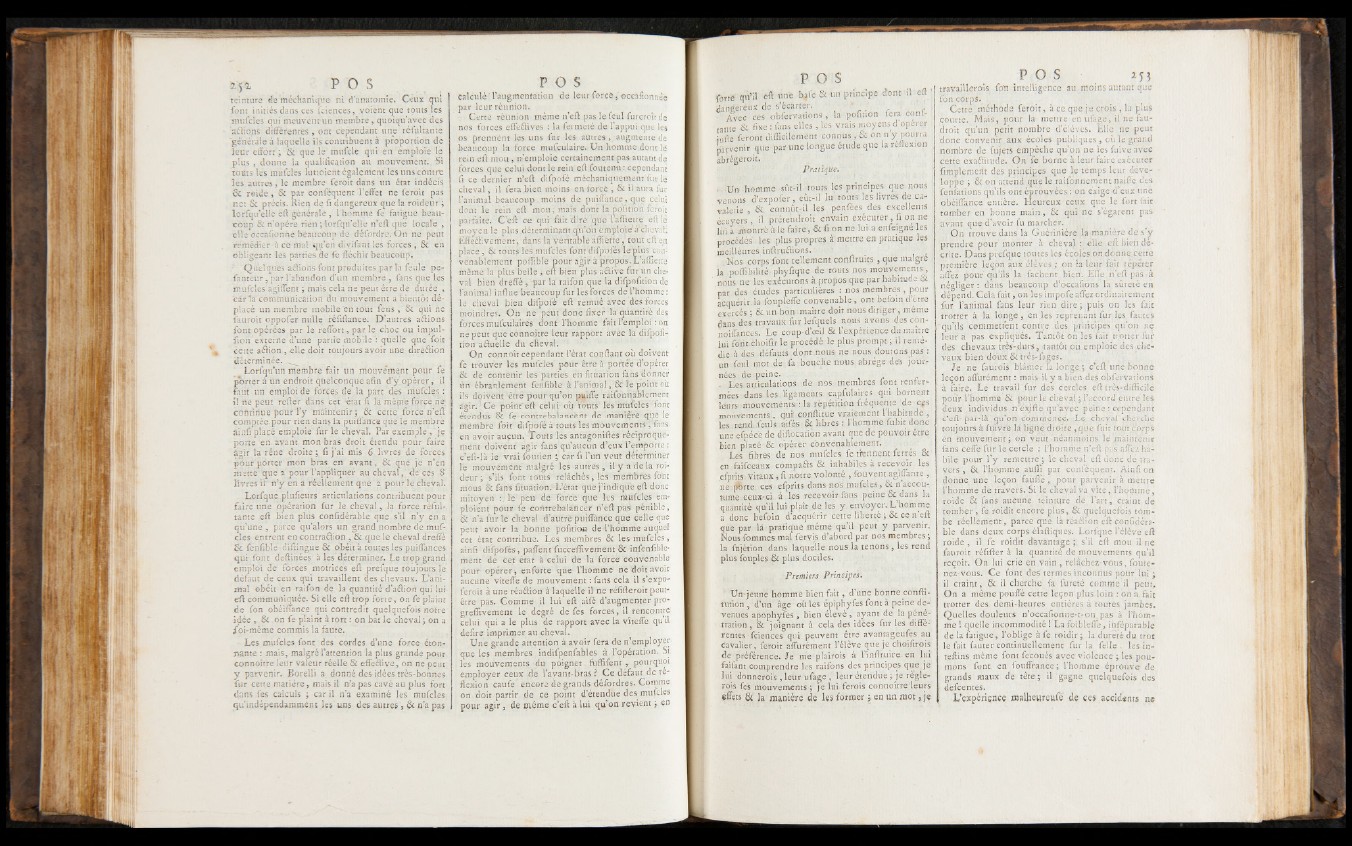 252 POS
teinture de méchanique ni d'anatomie. Ceux qui
sont initiés dans ces sciences, voient que tous les
muscles qui meuvent un membre, quoiqu'avec des
actions différentes, ont cependant une résultante
générale à laquelle ils contribuent à proportion de
leur effort, & que le muscle qui en emploie le
plus, donne la qualification au mouvement. Si
tous les muscles luttoient également les uns contre
les autres, le membre seroit dans un état indécis
& roide, & par conséquent l'effet ne seroit pas
net & précis. Rien de si dangereux que la roideur;
lorsqu'elle est générale, l'homme se fatigue beau-
coup & n'opère rien; lorsqu'elle n'est que locale,
elle occasionne beaucoup de désordre. On ne peut
remédier à ce mal qu'en divisant les forces, & en
obligeant les parties de se fléchir beaucoup.
Quelques actions sont produites par la seule pe-
santeur, par l'abandon d'un membre, sans que les
muscles agissent; mais cela ne peut être de durée,
car la communication du mouvement a bientôt dé-
placé un membre mobile en tout sens, & qui ne
sauroit opposer nulle résistance. D'autres actions
sont opérées par le ressort, par le choc ou impul-
sion externe d'une partie mobile: quelle que soit
cette action, elle doit toujours avoir une direction
déterminée.
Lorsqu'un membre fait un mouvement pour se
porter à un endroit quelconque afin d'y opérer, il
faut un emploi de forces de la part des muscles:
il ne peut rester dans cet état si la même force ne
continue pour l'y maintenir; & cette force n'est
comptée pour rien dans la puissance que le membre
ainsi placé emploie sur le cheval. Par exemple, je
porte en avant mon bras droit étendu pour faire
agir la rêne droite; si j'ai mis 6 livres de forces
pour porter mon bras en avant, & que je n'en
mette que 2 pour l'appliquer au cheval, de ces 8
livres il n'y en a réellement que 2 pour le cheval.
Lorsque plusieurs articulations contribuent pour
faire une opération sur le cheval, la force résul-
tante est bien plus considérable que s'il n'y en a
qu'une, parce qu'alors un grand nombre de mus-
cles entrent en contraction, & que le cheval dressé
& sensible distingue & obéit à toutes les puissances
qui sont destinées à les déterminer. Le trop grand
emploi de forces motrices est presque toujours le
défaut de ceux qui travaillent des chevaux. L'ani-
mal obéit en raison de la quantité d'action qui lui
est communiquée. Si elle est trop forte, on se plaint
de son obéissance qui contredit quelquefois notre
idée, & on se plaint à tort: on bat le cheval; on a
soi-même commis la faute.
Les muscles sont des cordes d'une force éton-
nante: mais, malgré l'attention la plus grande pour
connoitre leur valeur réelle & effective, on ne peut
y parvenir. Borelli a donné des idées très-bonnes
sur cette matière, mais il n'a pas cavé au plus fort
dans ses calculs; car il n'a examiné les muscles
qu'indépendamment les uns des autres, & n'a pas
POS
calculé l'augmentation de leur force, occasionnée
par leur réunion.
Cette réunion même n'est pas le seul surcroît de
nos forces effectives: la fermeté de l'appui que les
os prennent les uns sur les autres, augmente de
beaucoup la force musculaire. Un homme dont le
rein est mou, n'emploie certainement pas autant de
forces que celui dont le rein est soutenu: cependant
si ce dernier n'est disposé méchaniquement sur le
cheval, il sera bien moins en force, & il aura sur
l'animal beaucoup moins de puissance, que celui
dont le rein est mou, mais dont la position seroit
parfaite. C'est ce qui fait dire que l'assiette est le
moyen le plus déterminant qu'on emploie à cheval.
Effectivement, dans la véritable assiette, tout est en
place, & tous les muscles sont disposés le plus con-
venablement possible pour agir à propos. L'assiette
même la plus belle, est bien plus active sur un che-
val bien dressé, par la raison que la disposition de
l'animal influe beaucoup sur les forces de l'homme:
le cheval bien disposé est remué avec des forces
moindres. On ne peut donc fixer la quantité des
forces musculaires dont l'homme fait l'emploi: on
ne peut que connoitre leur rapport avec la disposi-
tion actuelle du cheval.
On connoit cependant l'état constant où doivent
se trouver les muscles pour être à portée d'opérer
& de contenir les parties en situation sans donner
un ébranlement sensible à l'animal, & le point où
ils doivent être pour qu'on puisse raisonnablement
agir. Ce point est celui où tous les muscles sont
étendus & se contrebalancent de manière que le
membre soit disposé à tous les mouvements, sans
en avoir aucun. Toutes les antagonistes réciproque-
ment doivent agir sans qu'aucun d'eux l'emporte:
c'est-là le vrai soutien; car si l'un veut déterminer
le mouvement malgré les autres, il y a de la roi-
deur; s'ils sont tous relâchés, les membres sont
mous & sans situation. L'état que j'indique est donc
mitoyen: le peu de force que les muscles em-
ploient pour se contrebalancer n'est pas pénible,
& n'a sur le cheval d'autre puissance que celle que
peut avoir la bonne position de l'homme auquel
cet état contribue. Les membres & les muscles,
ainsi disposés, passent successivement & insensible-
ment de cet état à celui de la force convenable
pour opérer, ensorte que l'homme ne doit avoir
aucune vitesse de mouvement: sans cela il s'expo-
seroit à une réaction à laquelle il ne résisteroit peut-
être pas. Comme il lui est aisé d'augmenter pro-
gressivement le degré de ses forces, il rencontre
celui qui a le plus de rapport avec la vitesse qu'il
desire imprimer au cheval.
Une grande attention à avoir sera de n'employer
que les membres indispensables à l'opération. Si
les mouvements du poignet suffisent, pourquoi
employer ceux de l'avant-bras? Ce défaut de ré-
flexion cause encore de grands désordres. Comme
on doit partir de ce point d'étendue des muscles
pour agir, de même c'est à lui qu'on revient; en
POS
sorte qu'il est une base & un principe dont il est
dangereux de s'écarter.
Avec ces observations, la position sera cons-
tante & fixe: sans elles, les vrais moyens d'opérer
juste seront difficilement connus, & on n'y pourra
parvenir que par une longue étude que la réflexion
abrégeroit.
Pratique.
Un homme sût-il tous les principes que nous
venons d'exposer, eût-il lu tous les livres de ca-
valerie, & connût-il les pensées des excellents
écuyers, il prétendroit envain exécuter, si on ne
lui a montré à le faire, & si on ne lui a enseigné les
procédés les plus propres à mettre en pratique les
meilleures instructions.
Nos corps sont tellement construits, que malgré
la possibilité physique de tous nos mouvements,
nous ne les exécutons à propos que par habitude &
par des études particulières: nos membres, pour
acquérir la souplesse convenable, ont besoin d'être
exercés; & un bon maître doit nous diriger, même
dans des travaux sur lesquels nous avons des con-
noissances. Le coup-d'œil & l'expérience du maître
lui font choisir le procédé le plus prompt; il remé-
die à des défauts dont nous ne nous doutons pas:
un seul mot de sa bouche nous abrège des jour-
nées de peine.
Les articulations de nos membres sont renfer-
mées dans les ligaments capsulaires qui bornent
leurs mouvements: la répétition fréquente de ces
mouvements, qui constitue vraiement l'habitude,
les rend seuls aisés & libres: l'homme subit donc
une espèce de dislocation avant que de pouvoir être
bien placé & opérer convenablement.
Les fibres de nos muscles se tiennent serrés &
en faisceaux compacts & inhabiles à recevoir les
esprits vitaux, si notre volonté, souvent agissante,
ne porte ces esprits dans nos muscles, & n'accou-
tume ceux-ci à les recevoir sans peine & dans la
quantité qu'il lui plaît de les y envoyer. L'homme
a donc besoin d'acquérir cette liberté, & ce n'est
que par la pratique même qu'il peut y parvenir.
Nous sommes mal servis d'abord par nos membres;
la sujétion dans laquelle nous la tenons, les rend
plus souples & plus dociles.
Premiers Principes.
Un jeune homme bien fait, d'une bonne consti-
tution, d'un âge où les épiphyses sont à peine de-
venues apophyses, bien élevé, ayant de la péné-
tration, & joignant à cela des idées sur les diffé-
rentes sciences qui peuvent être avantageuses au
cavalier, seroit assurément l'élève que je choisirois
de préférence. Je me plairois à l'instruire en lui
faisant comprendre les raisons des principes que je
lui donnerois, leur usage, leur étendue; je règle-
rois ses mouvements; je lui ferois connoître leurs
effets & la manière de les former; en un mot, je
POS 253
travaillerois son intelligence au moins autant que
son corps.
Cette méthode seroit, à ce que je crois, la plus
courte. Mais, pour la mettre en usage, il ne fau-
droit qu'un petit nombre d'élèves. Elle ne peut
donc convenir aux écoles publiques, où le grand
nombre de sujets empêche qu'on ne les suive avec
cette exactitude. On se borne à leur faire exécuter
simplement des principes que le temps leur déve-
loppe; & on attend que le raisonnement naisse des
sensations qu'ils ont éprouvées: on exige d'eux une
obéissance entière. Heureux ceux que le sort fait
tomber en bonne main, & qui ne s'égarent pas
avant que d'avoir su marcher.
On trouve dans la Guérinière la manière de s'y
prendre pour monter à cheval: elle est bien dé-
crite. Dans presque toutes les écoles on donne cette
première leçon aux élèves; on la leur fait répéter
assez pour qu'ils la sachent bien. Elle n'est pas à
négliger: dans beaucoup d'occasions la sûreté en
dépend. Cela fait, on les impose assez ordinairement
sur l'animal sans leur rien dire; puis on les fait
trotter à la longe, en les reprenant sur les fautes
qu'ils commettent contre des principes qu'on ne
leur a pas expliqués. Tantôt on les fait trotter sur
des chevaux très-durs, tantôt on emploie des che-
vaux bien doux & très-sages.
Je ne saurois blâmer la longe; c'est une bonne
leçon assurément: mais il y a bien des observations
à faire. Le travail sur des cercles est très-difficile
pour l'homme & pour le cheval; l'accord entre les
deux individus n'existe qu'avec peine: cependant
c'est par-là qu'on commence. Le cheval cherche
toujours à suivre la ligne droite, que suit tout corps
en mouvement; on veut néanmoins le maintenir
sans cesse sur le cercle: l'homme n'est pas assez ha-
bile pour l'y remettre; le cheval est donc de tra-
vers, & l'homme aussi par conséquent. Ainsi on
donne une leçon fausse, pour parvenir à mettre
l'homme de travers. Si le cheval va vîte, l'homme,
roide & sans aucune teinture de l'art, craint de
tomber, se roidit encore plus, & quelquefois tom-
be réellement, parce que la réaction est considéra-
ble dans deux corps élastiques. Lorsque l'élève est
roide, il se roidit davantage; s'il est mou il ne
sauroit résister à la quantité de mouvements qu'il
reçoit. On lui crie en vain, relâchez-vous, soute-
nez-vous. Ce sont des termes inconnus pour lui;
il craint, & il cherche sa sureté comme il peut.
On a même poussé cette leçon plus loin: on a fait
trotter des demi-heures entières à toutes jambes.
Quelles douleurs n'occasionne-t-on pas à l'hom-
me! quelle incommodité! La foiblesse, inséparable
de la fatigue, l'oblige à se roidir; la dureté du trot
le fait sauter continuellement sur la selle: les in-
testins même sont secoués avec violence; les pou-
mons sont en souffrance; l'homme éprouve de
grands maux de tête; il gagne quelquefois des
descentes.
L'expérience malheureuse de ces accidents ne